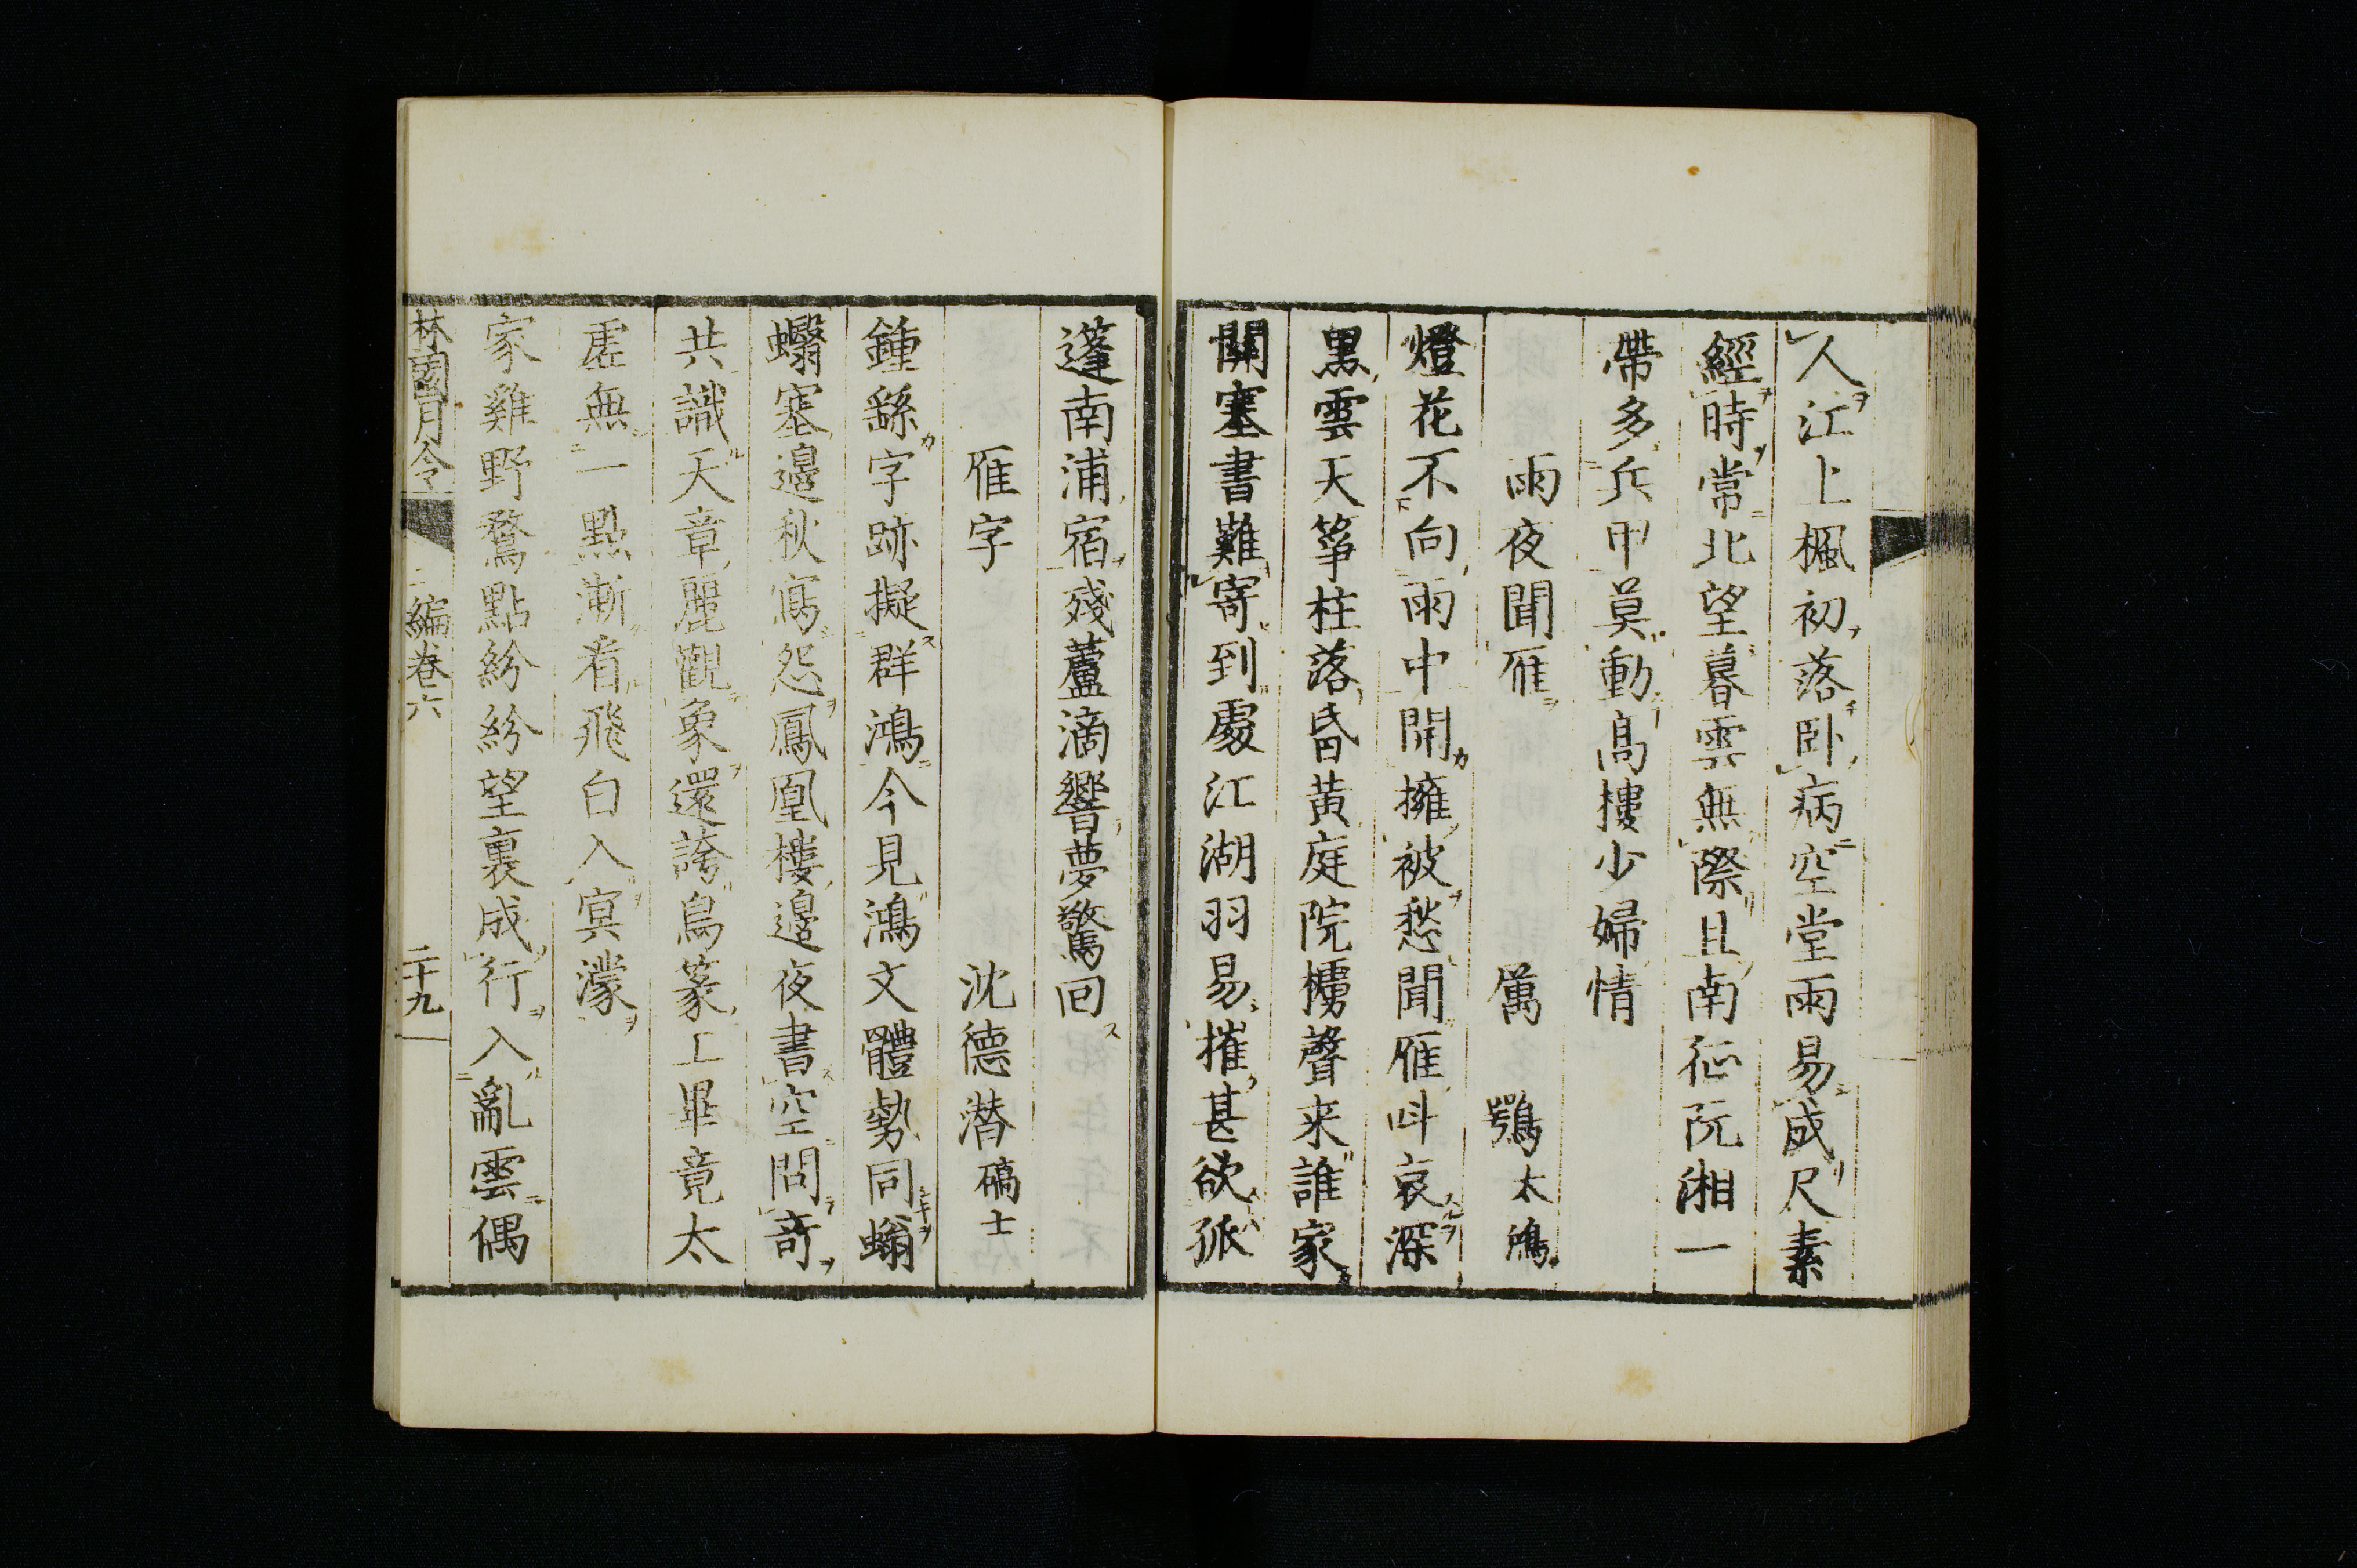 人江上楓初落臥病空堂雨易成尺素
經時常北望暮雲無際且南征沅湘一
帶多兵甲莫動高樓少婦情
雨夜聞雁 厲鶚太鴻
燈花不向雨中開擁被愁聞雁呌哀深
黒雲天箏柱落昏黃庭院櫓聲来誰家
關塞書難寄到處江湖羽易摧甚欲孤
篷南浦宿殘蘆滴響夢驚回
雁字 沈德潜碻士
鍾繇字跡擬群鴻今見鴻文體勢同螉
䗿塞邉秋寫怨鳳凰樓邉夜書空問竒
共識天章麗觀象還誇鳥篆工畢竟太
虛無一點漸看飛白入冥濛
家雞野鶩點紛紛望裏成行入亂雲偶
林園月令 二編卷六 二十九